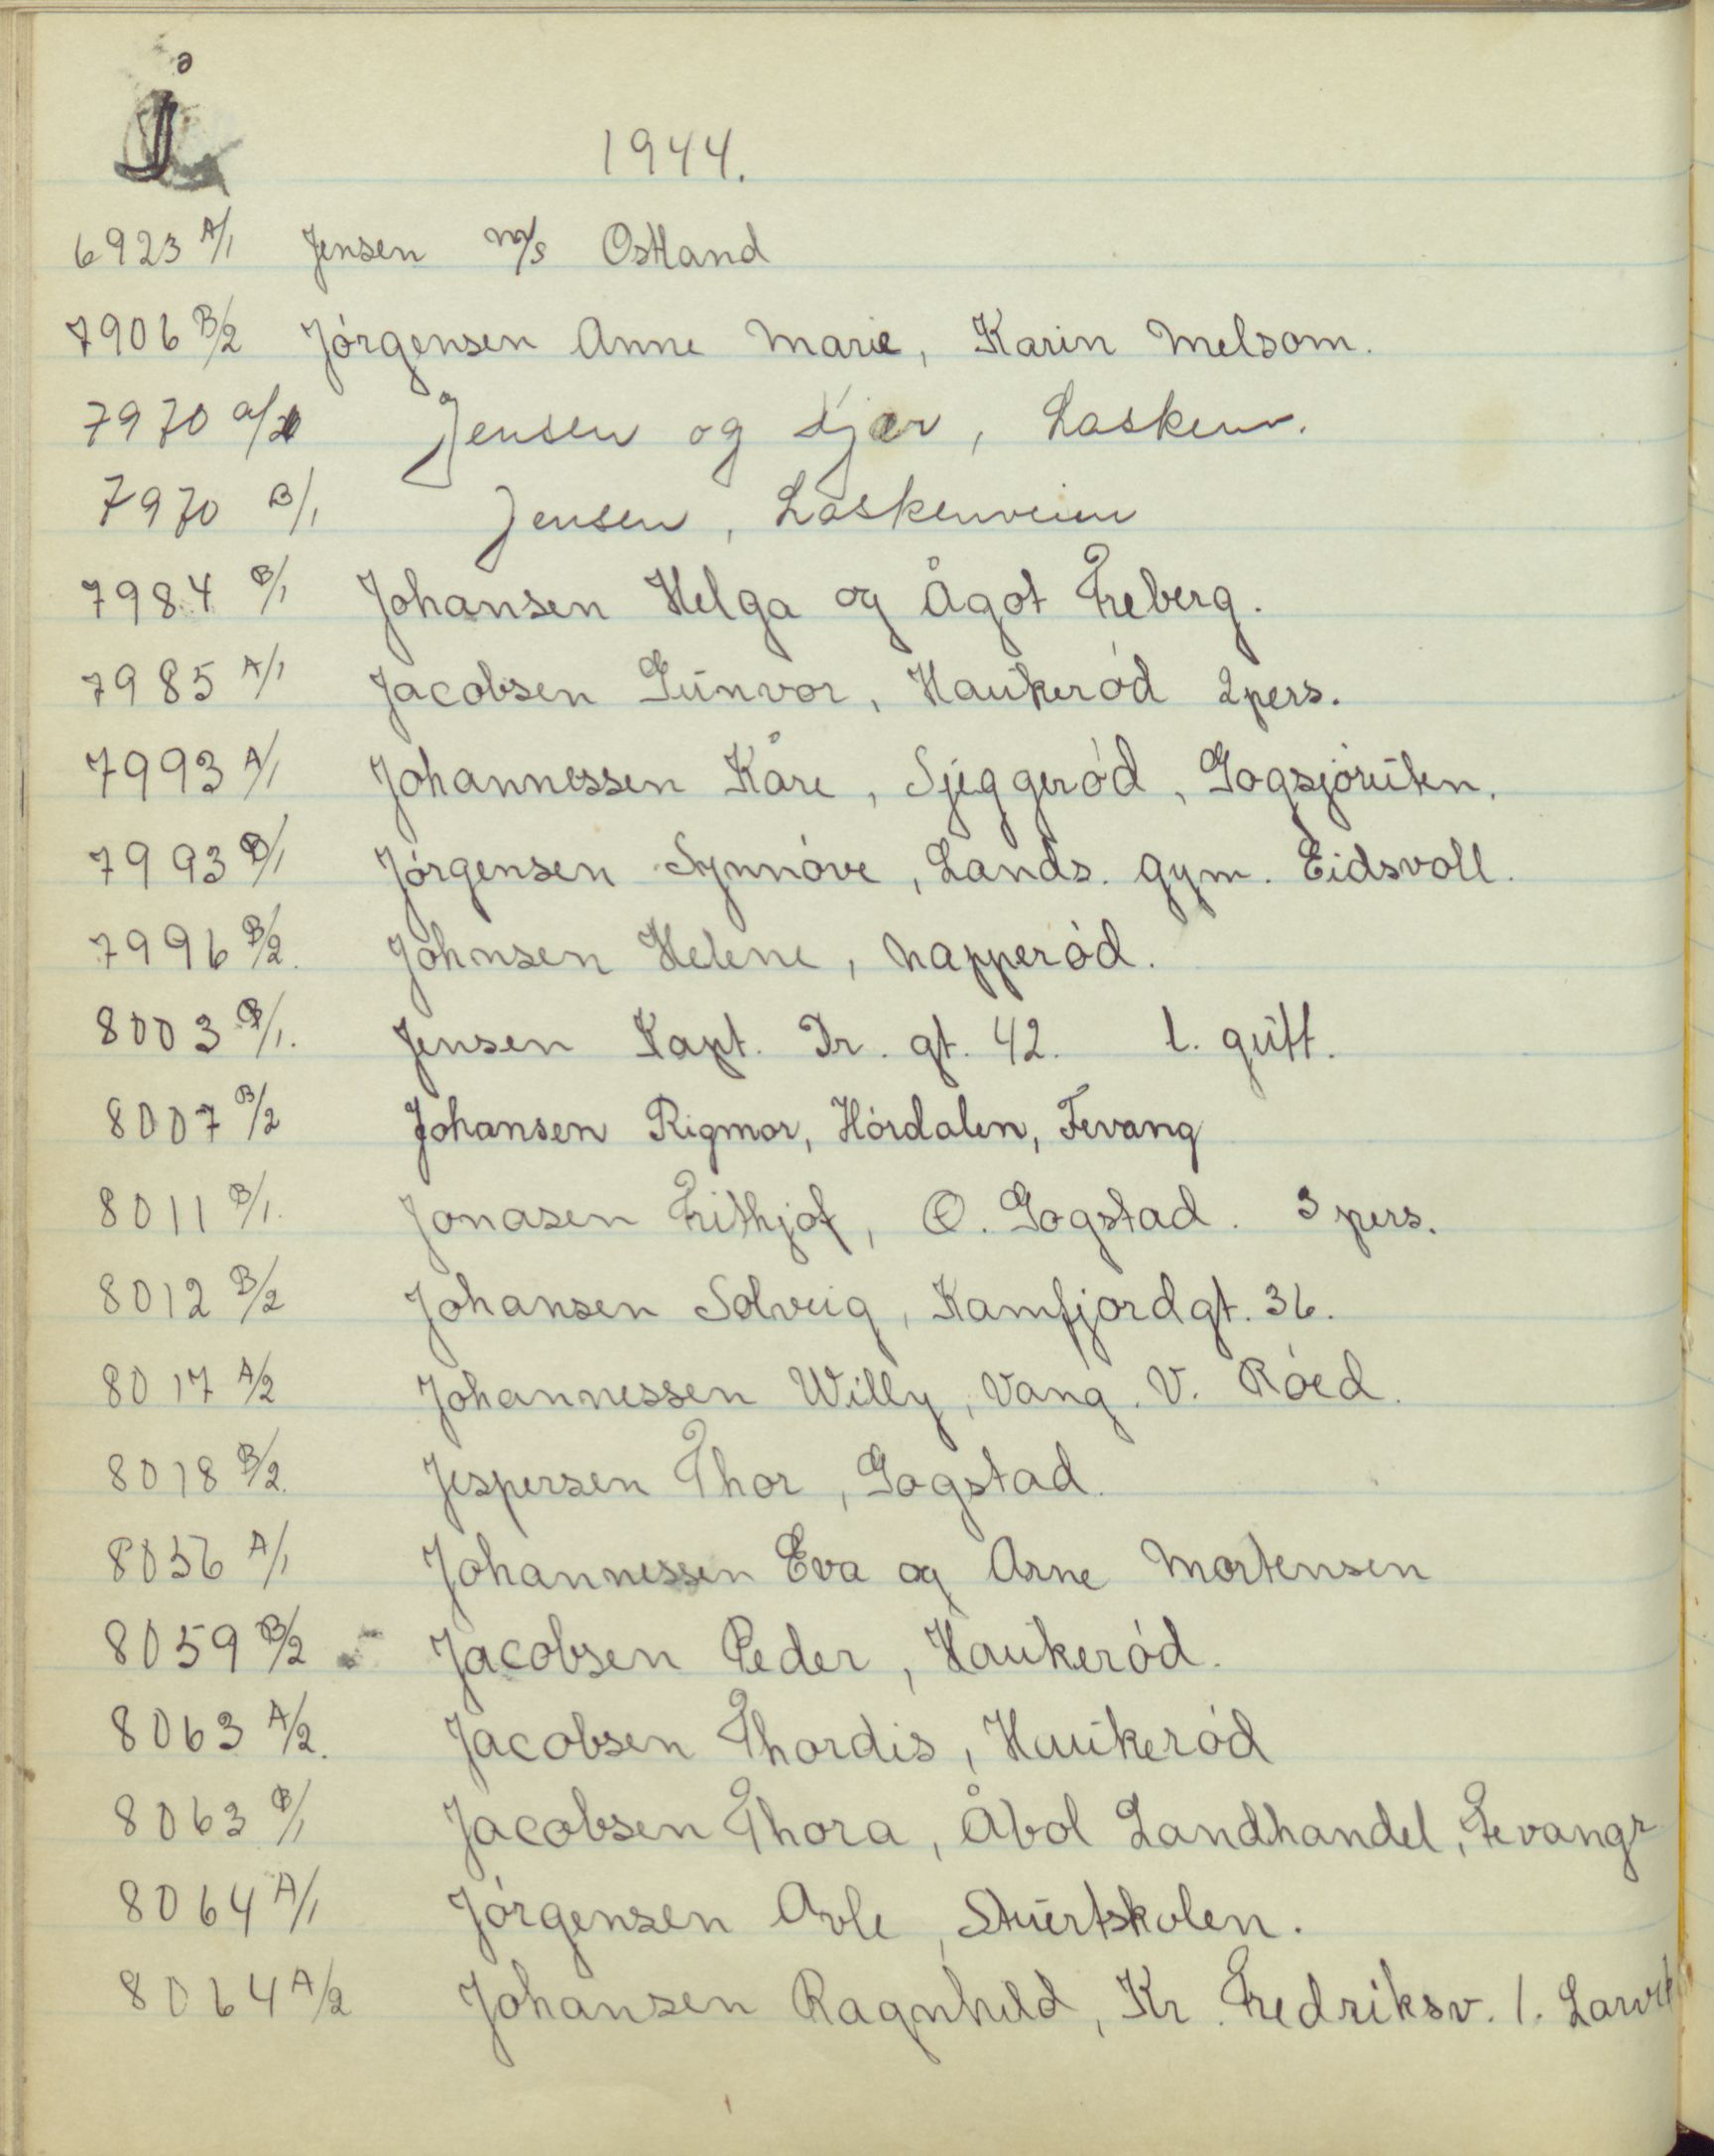 J
1944.
6923 A/1 Jensen M/S Ostland
7906 B/2 Jórgensen Anne Marie, Karin Melsom.
7970 a/2 Jensen og Kjær, Laskenv.
7970 B/1 Jensen, Laskenveien
7984 B/1 Johansen Helga og Ågot Freberg.
7985 A/1 Jacobsen Gunvor, Haukeród 2 pers.
7993 A/1 Johannessen Kåre, Sjeggeród, Gogsjóruten.
7993 B/1 Jórgensen Synnóve, Lands. gym. Eidsvoll.
7996 B/2. Johnsen Helene, Napperód.
8003 B/1. Jensen Kapt. Dr. gt. 42. l. gutt.
8007 B/2 Johansen Rigmor, Hórdalen, Fevang
8011 B/1. Jonasen Frithjof, Ø. Gogstad. 3 pers.
8012 B/2 Johansen Solveig, Kamfjordgt. 36.
8017 A/2 Johannessen Willy, Vang. V. Róed.
8018 B/2. Jespersen Thor, Gogstad.
8036 A/1 Johannessen Eva og Arne Mortensen
8059 B/2 Jacobsen Peder, Haukeród.
8063 A/2. Jacobsen Thordis, Haukeród
8063 B/1 Jacobsen Thora, Åbol Landhandel, Fevangr
8064 A/1 Jórgensen Avle, Stuertskolen.
8064 A/2 Johansen Ragnhild, Kr. Fredriksv. 1. Larvik